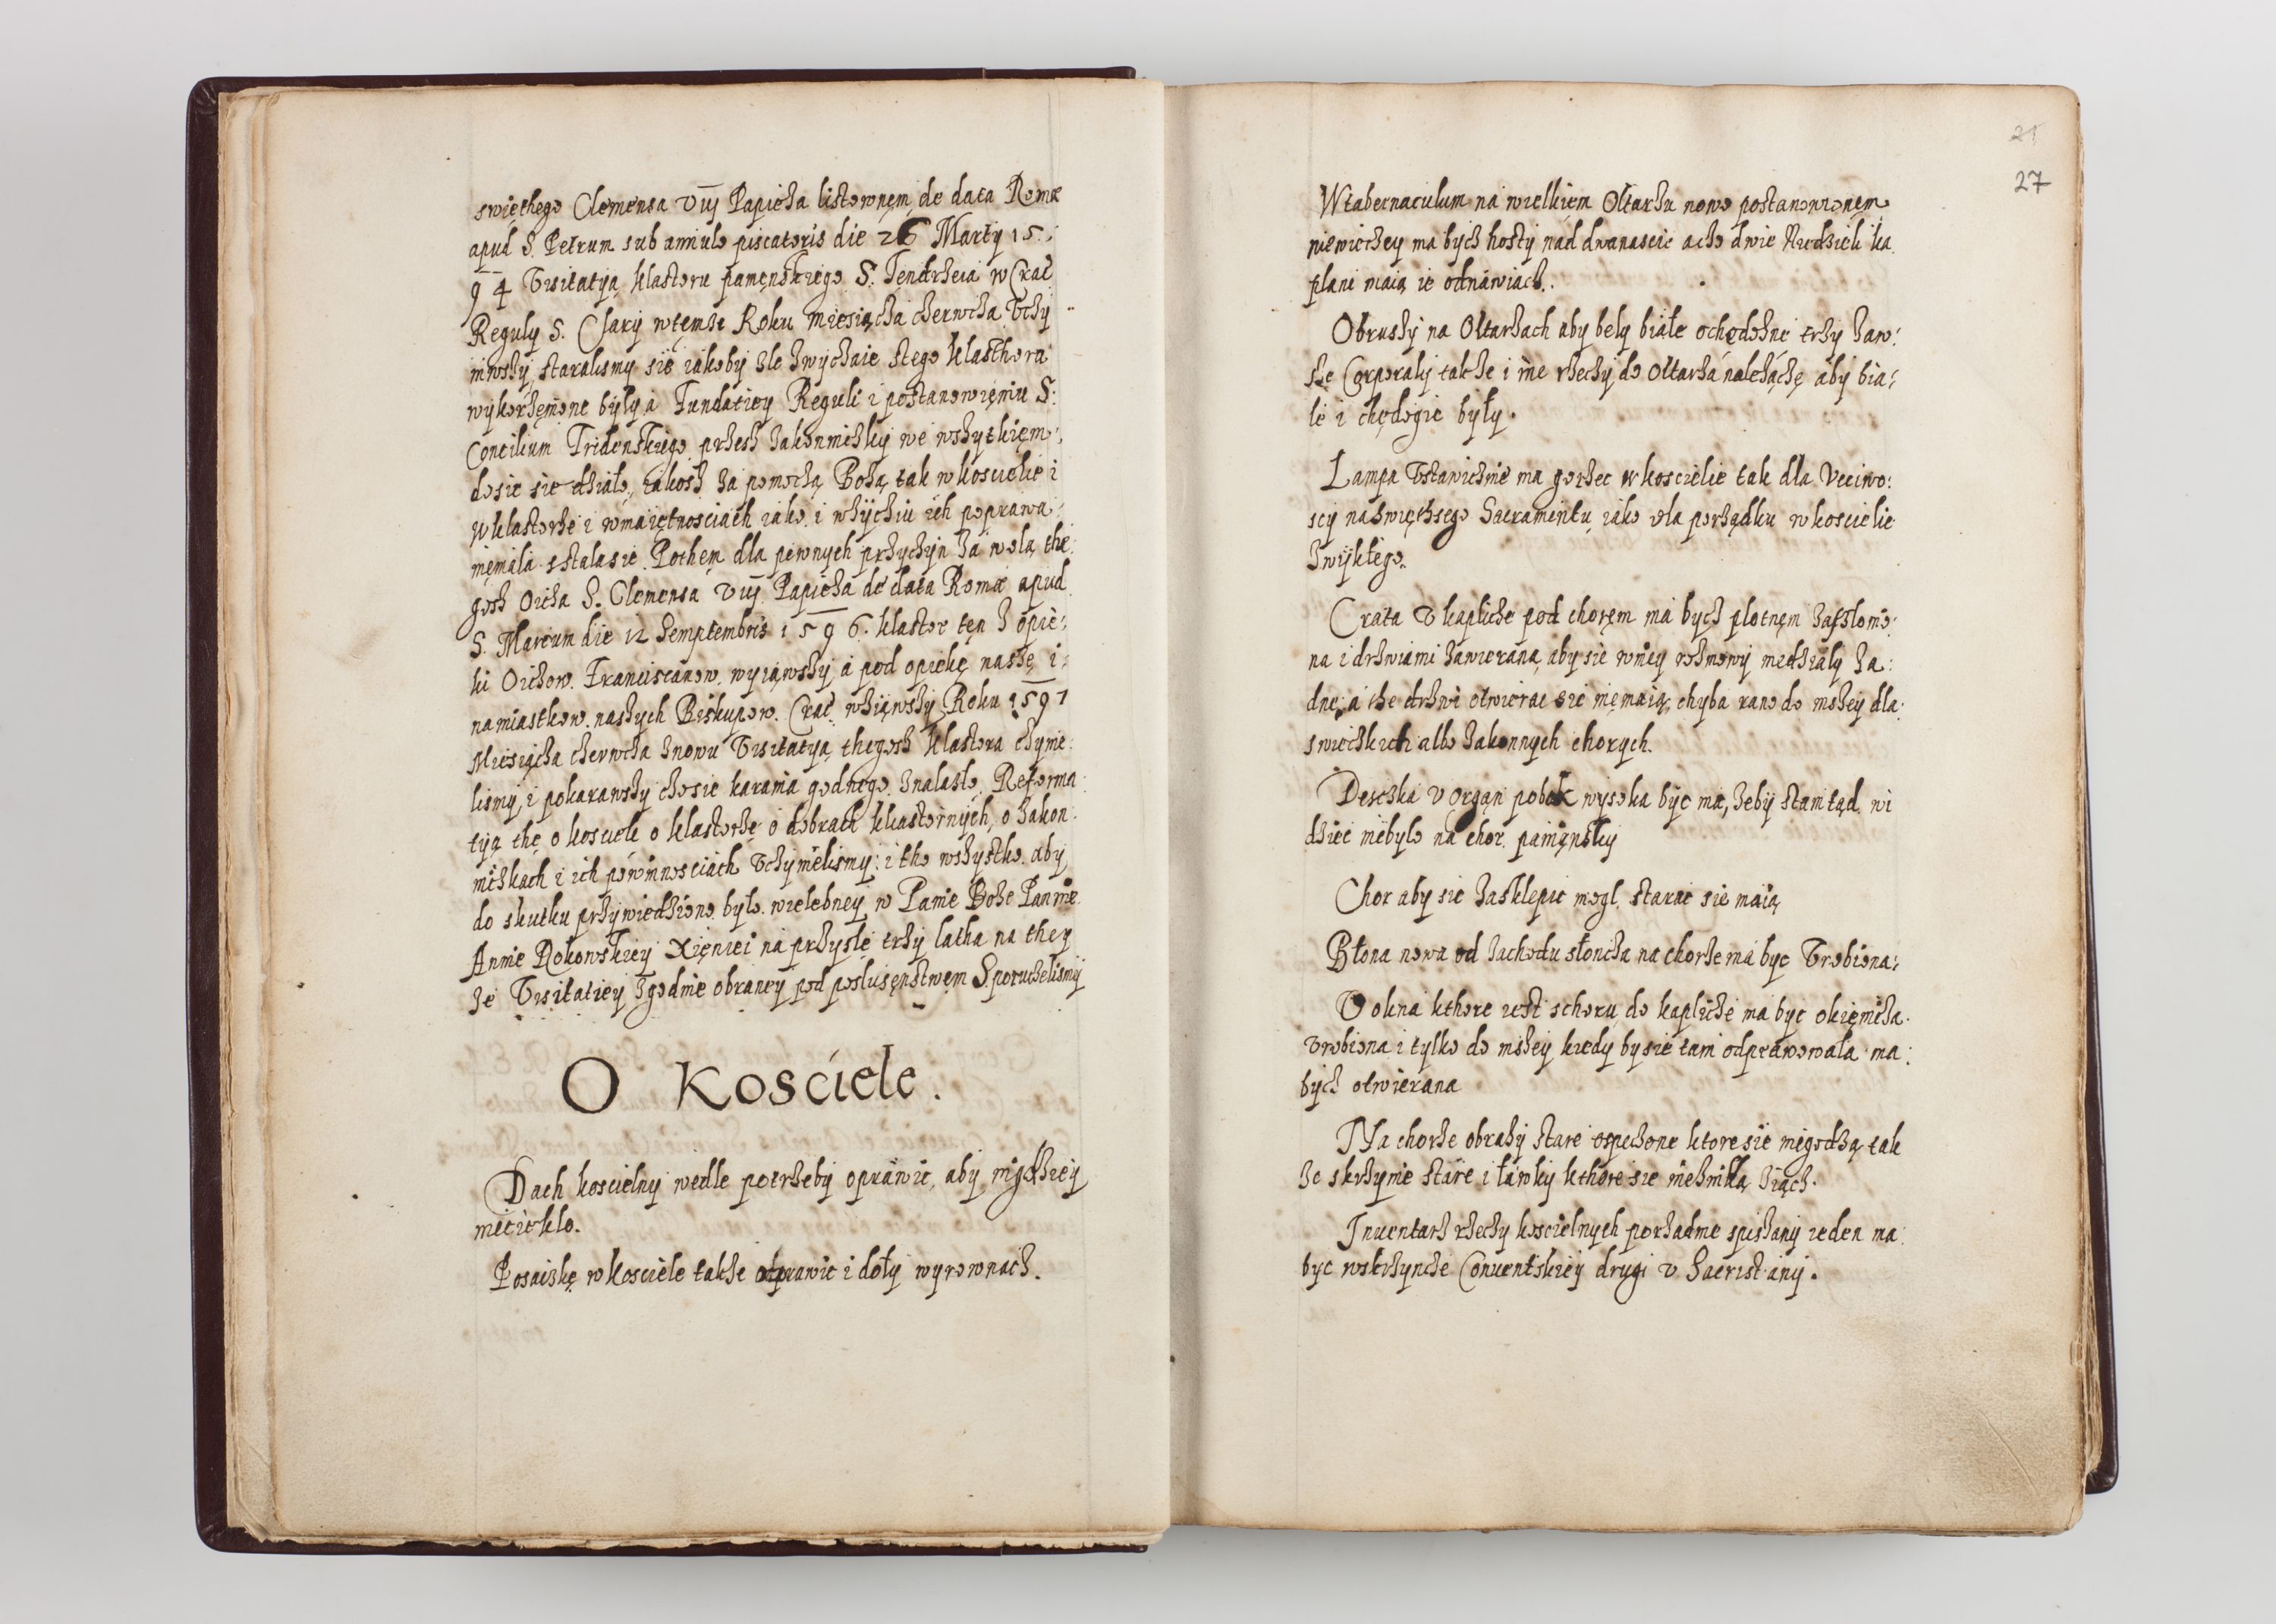 swięthego Clemensa VIIJ Papieża listownęm de data Romæ
apud S. Petrum sub annulo piscatoris die 26 Martÿ 15:
94 Visitatÿą klastoru panęnskiego S. Jendrzeia w Crac
Regulÿ S. Clarÿ wtęmże Roku miesiącza czerwcza Vczÿ
niwszÿ staralismÿ się iakobÿ złe zwÿczaie stego klasthora
wÿkorzęnione bÿłÿ a Fundatieÿ Reguli i postanowięniu S:
Concilium Tridenskiego przesz zakonniczkÿ we wszÿtkięm
dosic się działo, iakosz za pomoczą Bożą tak w kosciele i
w klastorże i w maiętnosciach iako i w życziu ich poprawa
niemała sstała się. Pothem dla pewnÿch przÿczÿn za wolą the:
gosz Oicza S. Clemensa VIIJ Papieża de data Romæ apud
S. Marcum die 12 Semptembris 1596. klastor ten z opie:
ki Oiczow Franciscanow wÿiąwszÿ a pod opiekę naszę i
namiastkow naszÿch Biskupow Crac wziąwszÿ Roku 1597
Miesiącza czerwcza znowu Visitatÿą thegosz klastora czÿnie
lismÿ, i pokarawszÿ czosie karania godnego znalazło Reforma
tÿą thę o kosciele o klastorżę o dobrach klastornÿch, o zakon
niczkach i ich powinnosciach Vczÿnielismÿ: i tho wszÿstko abÿ
do skutku przÿwiedziono bÿło wielebneÿ w Panie Bodze Pannie
Annie Rokowskieÿ Xięniei na przÿszłe trzÿ latha na theÿ
że Visitatieÿ zgodnie obraneÿ pod posłusęnstwęm S. porucżelismÿ
O Kościele.
Dach koscielnÿ wedle potrzebÿ oprawic, abÿ nigdzieÿ
nieciekło.
Posaiżkę w kosciele takze oprawic i dołÿ wÿrownacz.
21
27
W tabernaculum na wielkięm Ołtarzu nowo postanowionęm
niewięczeÿ ma bÿcz hostÿ nad dwanascie a czo dwie Niedzieli ka
płani maią ie odnawiacz.
Obruszÿ na Ołtarzach abÿ bełÿ białe ochędożne trzÿ zaw:
sze Corporalÿ takze i inne rzeczÿ do ołtarza należączę abÿ bia:
łe i chędogie bÿłÿ.
Lampa Vstawicznie ma gorzec w kosciele tak dla Vcciwo:
sci naswięthsego Sacramentu iako dla porządku w kosciele
zwÿkłego.
Crata V kapliche pod choręm ma bÿcz płotnęm zasłonio:
na i drzwiami zawierana, abÿ sie w nieÿ rozmowÿ niedziałÿ ża:
dne, a the drzwi otwierac sie niemaią, chÿba rano do mszeÿ dla
swieczkich albo zakonnÿch chorÿch.
Desczka V organ pobok wÿsoka bÿc ma, żebÿ stamtąd wi
dziec niebÿło na chor panięnskÿ
Chor abÿ sie zasklepic mogł, starac sie maią
Błona nowa od zachodu słoncza na chorze ma bÿc Vrobiona:
V okna kthore iest s choru do kapliczę ma bÿc okięnicza
Vrobiona i tÿlko do mszeÿ kiedÿ bÿsie tam odprawowała ma
bÿcz otwierana
Na chorze obrazÿ stare ospeczone ktore sie niegodzą, tak
że skrzÿnie stare i ławkÿ kthore sie nieżnidą ziącz.
Inuentarz rzeczÿ koscielnÿch porzadnie spiszanÿ ieden ma
bÿc w skrzÿncze Conuentskieÿ drugi V Sacristianÿ.